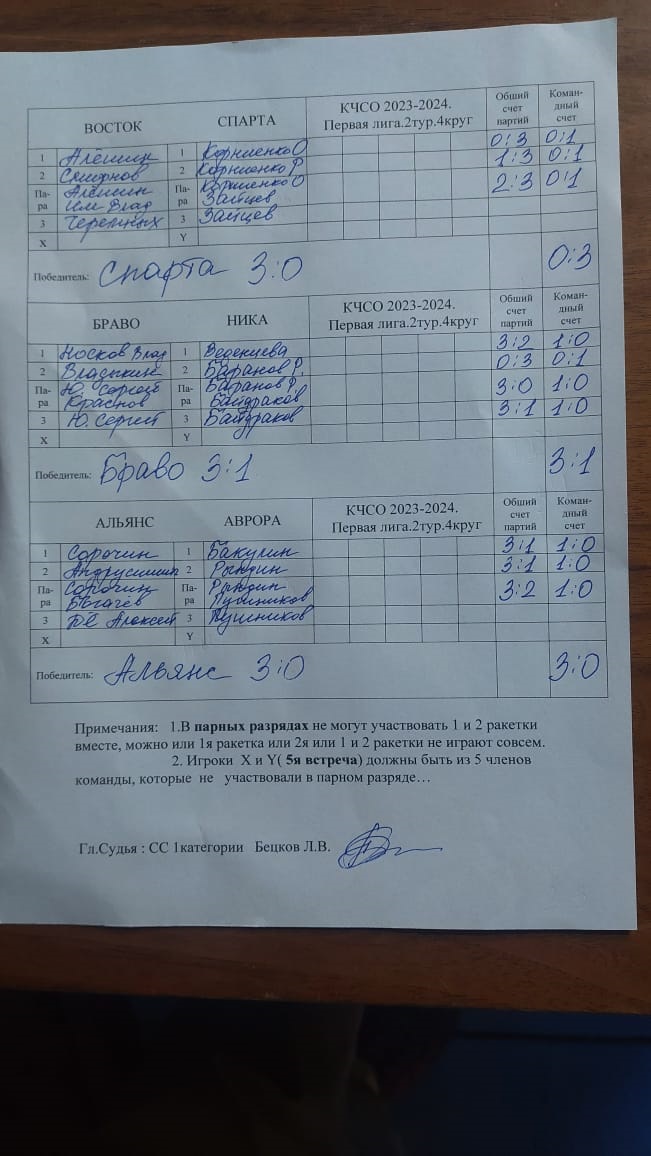 ВОСТОК СПАРТА КЧСО 2023-2024. Первая лига.2тур.4круг Общий счет партий Коман-дный счет
1 Алёшин 1 Корниенко О 0:3 0:1
2 Смирнов 2 Корниенко Р 1:3 0:1
Па-ра Алёшин Па-ра Корниенко О 2:3 0:1
Влад Зайцев
3 Черемных 3 Зайцев
X Y
Победитель: Спарта 3:0 0:3
БРАВО НИКА КЧСО 2023-2024. Первая лига.2тур.4круг Общий счет партий Коман-дный счет
1 Носков Влад 1 Веденцева 3:2 1:0
2 Владыкин 2 Баранов Р. 0:3 0:1
Па-ра Ю. Сергей Па-ра Баранов Р. 3:0 1:0
Краснов Байдраков
3 Ю. Сергей 3 Байдраков 3:1 1:0
X Y
Победитель: Браво 3:1 3:1
АЛЬЯНС АВРОРА КЧСО 2023-2024. Первая лига.2тур.4круг Общий счет партий Коман-дный счет
1 Сорочин 1 Бакулин 3:1 1:0
2 2 Рындин 3:1 1:0
Па-ра Сорочин Па-ра Рындин 3:2 1:0
Богачёв Лушников
3 Алексей 3 Лушников
X Y
Победитель: Альянс 3:0 3:0
Примечания: 1.В парных разрядах не могут участвовать 1 и 2 ракетки
вместе, можно или 1я ракетка или 2я или 1 и 2 ракетки не играют совсем.
2. Игроки X и Y( 5я встреча) должны быть из 5 членов
команды, которые не участвовали в парном разряде…
Гл.Судья : СС 1категории Бецков Л.В.